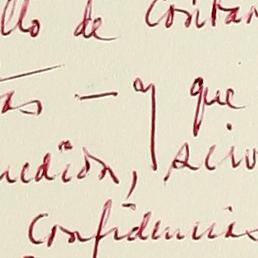 llo de contar
as — y que
edión, sino
Confidencias